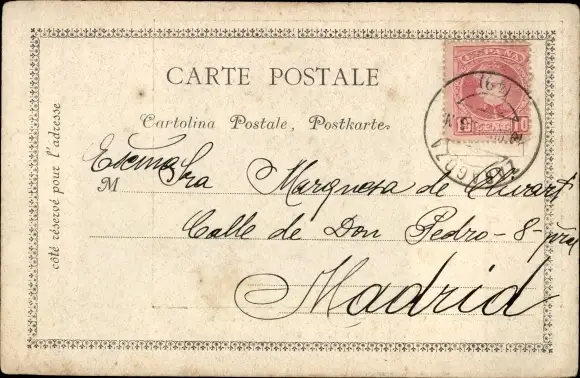 ESPAÑA
CARTE POSTALE
10 10
Cartolina Postale, Postkarte
côté réservé pour l'adresse
Excma Sra Marquesa de Olivart
M
Calle de Don Pedro-8-pral
Madrid